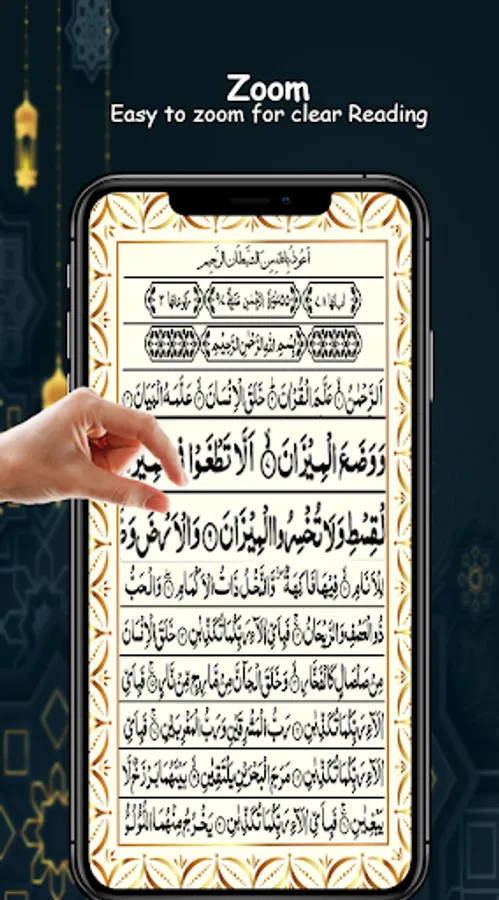 Zoom
Easy to zoom for clear Reading
أَعُوذُ بِاللّٰهِ مِنَ الشَّيْطَانِ الرَّجِيْمِ
اٰیاتها ۷۸ ۵۵ سُوْرَةُ الرَّحْمٰنِ ۹۷ رکوعاتها ۳
بِسْمِ اللهِ الرَّحْمٰنِ الرَّحِيْمِ
اَلرَّحْمٰنُ ۙ عَلَّمَ الْقُرْاٰنَ ؕ خَلَقَ الْاِنْسَانَ ۙ عَلَّمَهُ الْبَيَانَ
وَوَضَعَ الْمِيْزَانَ ۙ اَلَّا تَطْغَوْا
لْقِسْطِ وَلَا تُخْسِرُوا الْمِيْزَانَ وَالْاَرْضَ وَضَ
لِلْاَنَامِ ۙ فِيْهَا فَاكِهَةٌ وَّالنَّخْلُ ذَاتُ الْاَكْمَامِ ۖ وَالْحَبُّ
ذُو الْعَصْفِ وَالرَّيْحَانُ ۚ فَبِاَيِّ اٰلَآءِ رَبِّكُمَا تُكَذِّبٰنِ خَلَقَ الْاِنْسَانَ
مِنْ صَلْصَالٍ كَالْفَخَّارِ ۙ وَخَلَقَ الْجَآنَّ مِنْ مَّارِجٍ مِّنْ نَّارٍ ۚ فَبِاَيِّ
اٰلَآءِ رَبِّكُمَا تُكَذِّبٰنِ رَبُّ الْمَشْرِقَيْنِ وَرَبُّ الْمَغْرِبَيْنِ ۚ فَبِاَيِّ
اٰلَآءِ رَبِّكُمَا تُكَذِّبٰنِ مَرَجَ الْبَحْرَيْنِ يَلْتَقِيٰنِ ۙ بَيْنَهُمَا بَرْزَخٌ لَّا
يَبْغِيٰنِ ۚ فَبِاَيِّ اٰلَآءِ رَبِّكُمَا تُكَذِّبٰنِ يَخْرُجُ مِنْهُمَا اللُّؤْلُؤُ